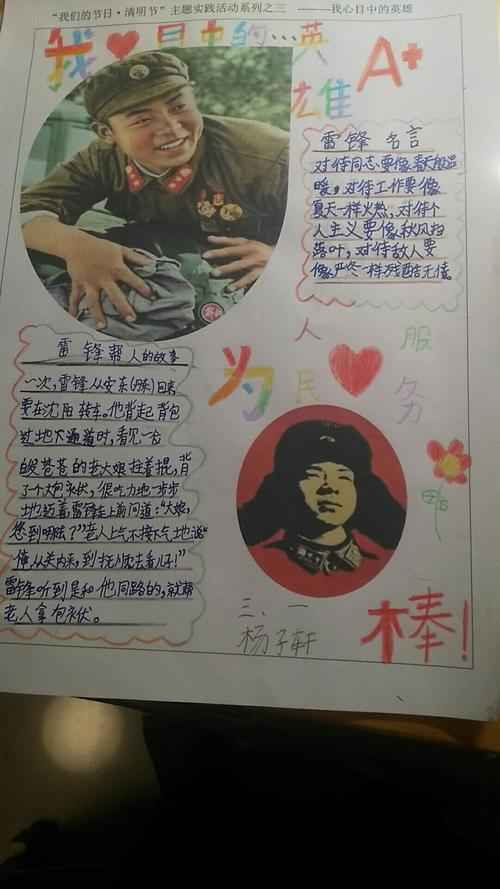 “我们的节日·清明节”主题实践活动系列之三 ———我心目中的英雄
我 目中的…英
雄
A+
雷锋名言
对待同志要像春天般温
暖，对待工作要像
夏天一样火热，对待个
人主义要像秋风扫
落叶，对待敌人要
像严冬一样残酷无情
雷锋帮人的故事
一次，雷锋从安东
要在沈阳转车。他背起背包
过地下通道时，看见一位
白发苍苍的老大娘拄着棍，背
了个大包袱，很吃力地一步步
地迈着雷锋走上前问道：“大娘，
您到哪去？”老人上气不接下气地说“
俺从关内来，到抚顺去看儿子！”
雷锋听到是和他同路的，就帮
老人拿包袱。
为人民服务
三、一
杨子轩
棒！